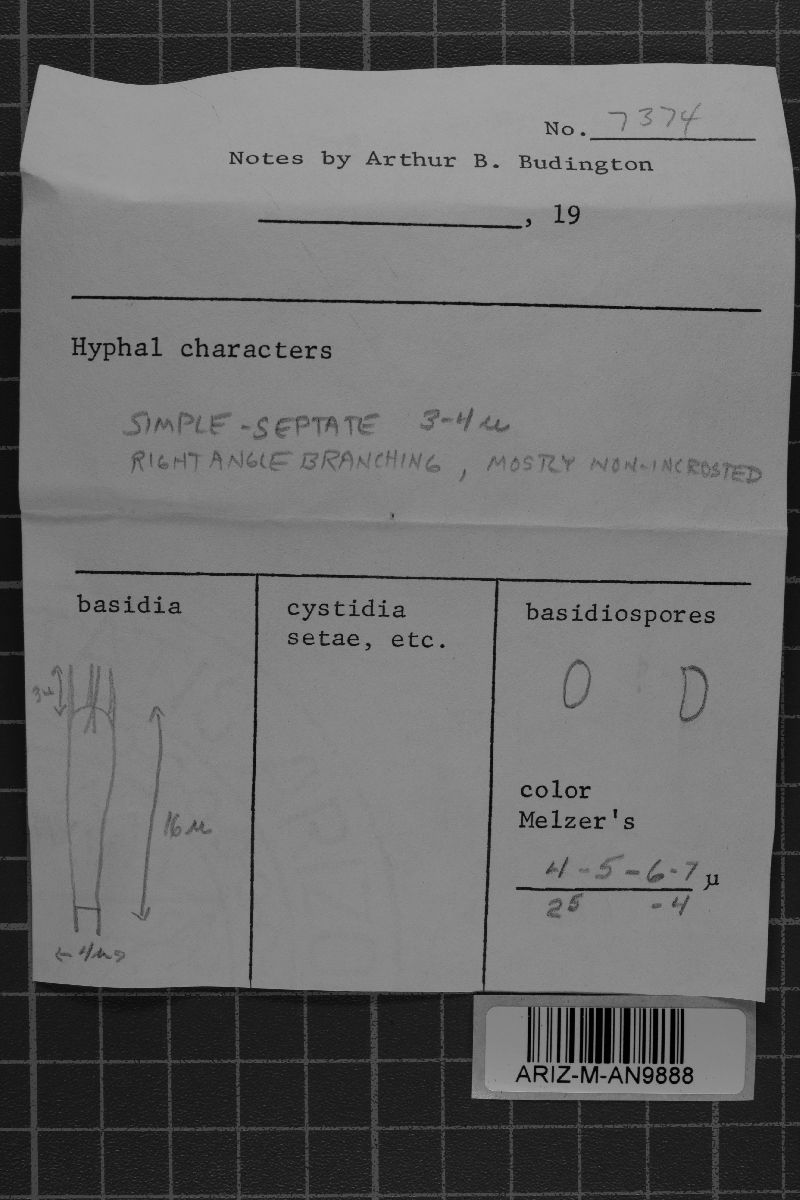 No. 7374
Notes by Arthur B. Budington
, 19
Hyphal characters
SIMPLE-SEPTATE 3-4 µ
RIGHT ANGLE BRANCHING, MOSTLY NON-INCROSTED
basidia
cystidia
setae, etc.
basidiospores
3µ
16 µ
4µ
color
Melzer's
4-5-6-7 µ
25 -4
ARIZ-M-AN9888